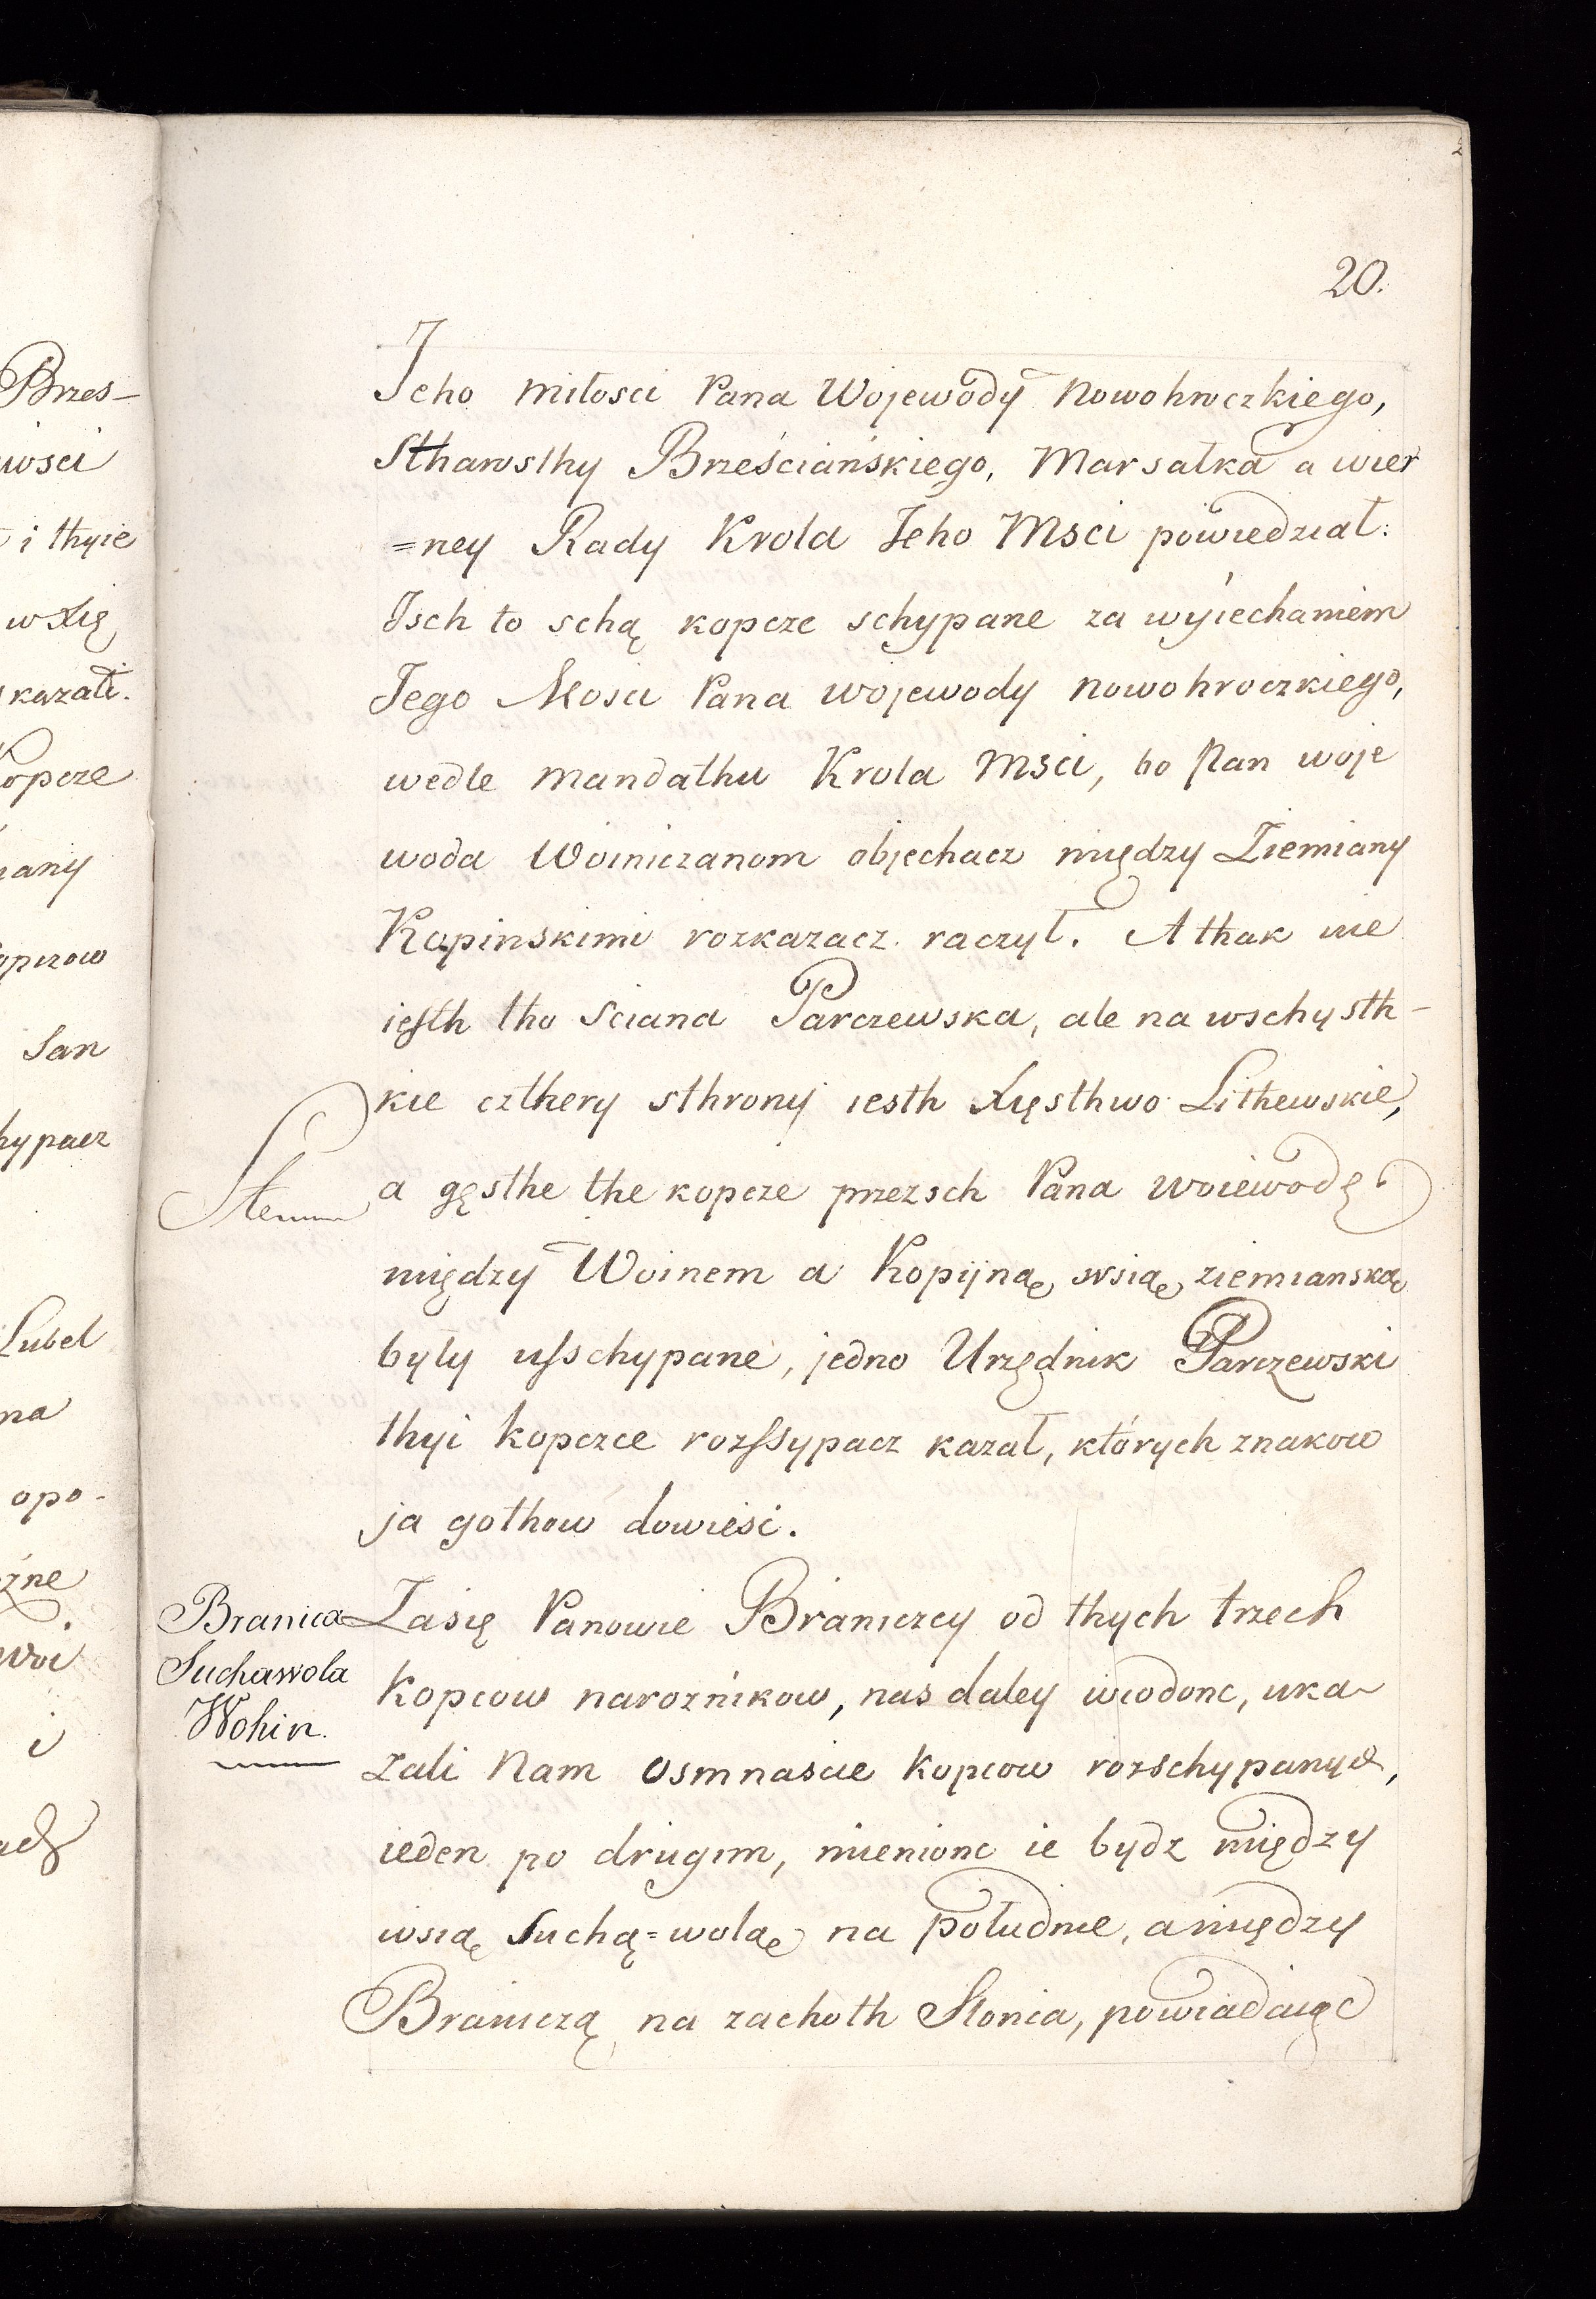 20.
Jeho miłosci Pana Wojewody Nowohroczkiego,
Stharosthy Brześciańskiego, Marsałka a wier
=ney Rady Krola Jeho Msci powiedział:
Isch to schą kopcze schypane za wyiechaniem
Jego Mosci Pana wojewody nowohroczkiego,
wedle mandathu Krola Msci, bo Pan woje
woda Woiniczanom objechacz między Ziemiany
Kopinskimi rozkazacz raczył. A thak nie
iesth tho sciana Parczewska, ale na wschysth-
kie czthery sthrony iesth Xięsthwo Lithewskie,
a gęsthe the kopcze przezsch Pana woiewodę
między Woinem a Kopijną wsią ziemianską
były usschypane, jedno Urzędnik Parczewski
thyi kopcze rozssypacz kazał, których znakow
ja gothow dowiesi.
Branica
Suchawola
Wohin.
Zasię Panowie Braniczcy od thych trzech
Kopcow narożnikow, nas daley wiodonc, uka-
zali Nam osmnascie kopcow rozschypanych,
ieden po drugim, mienionc ie bydz między
wsią Suchą=wolą na południe, a między
Braniczą na zachoth Słonca, powiadaięc
Brzes-
i thyie
w Xię
kazali.
opcze
San
hypacz
Lubel
na
opo-
i